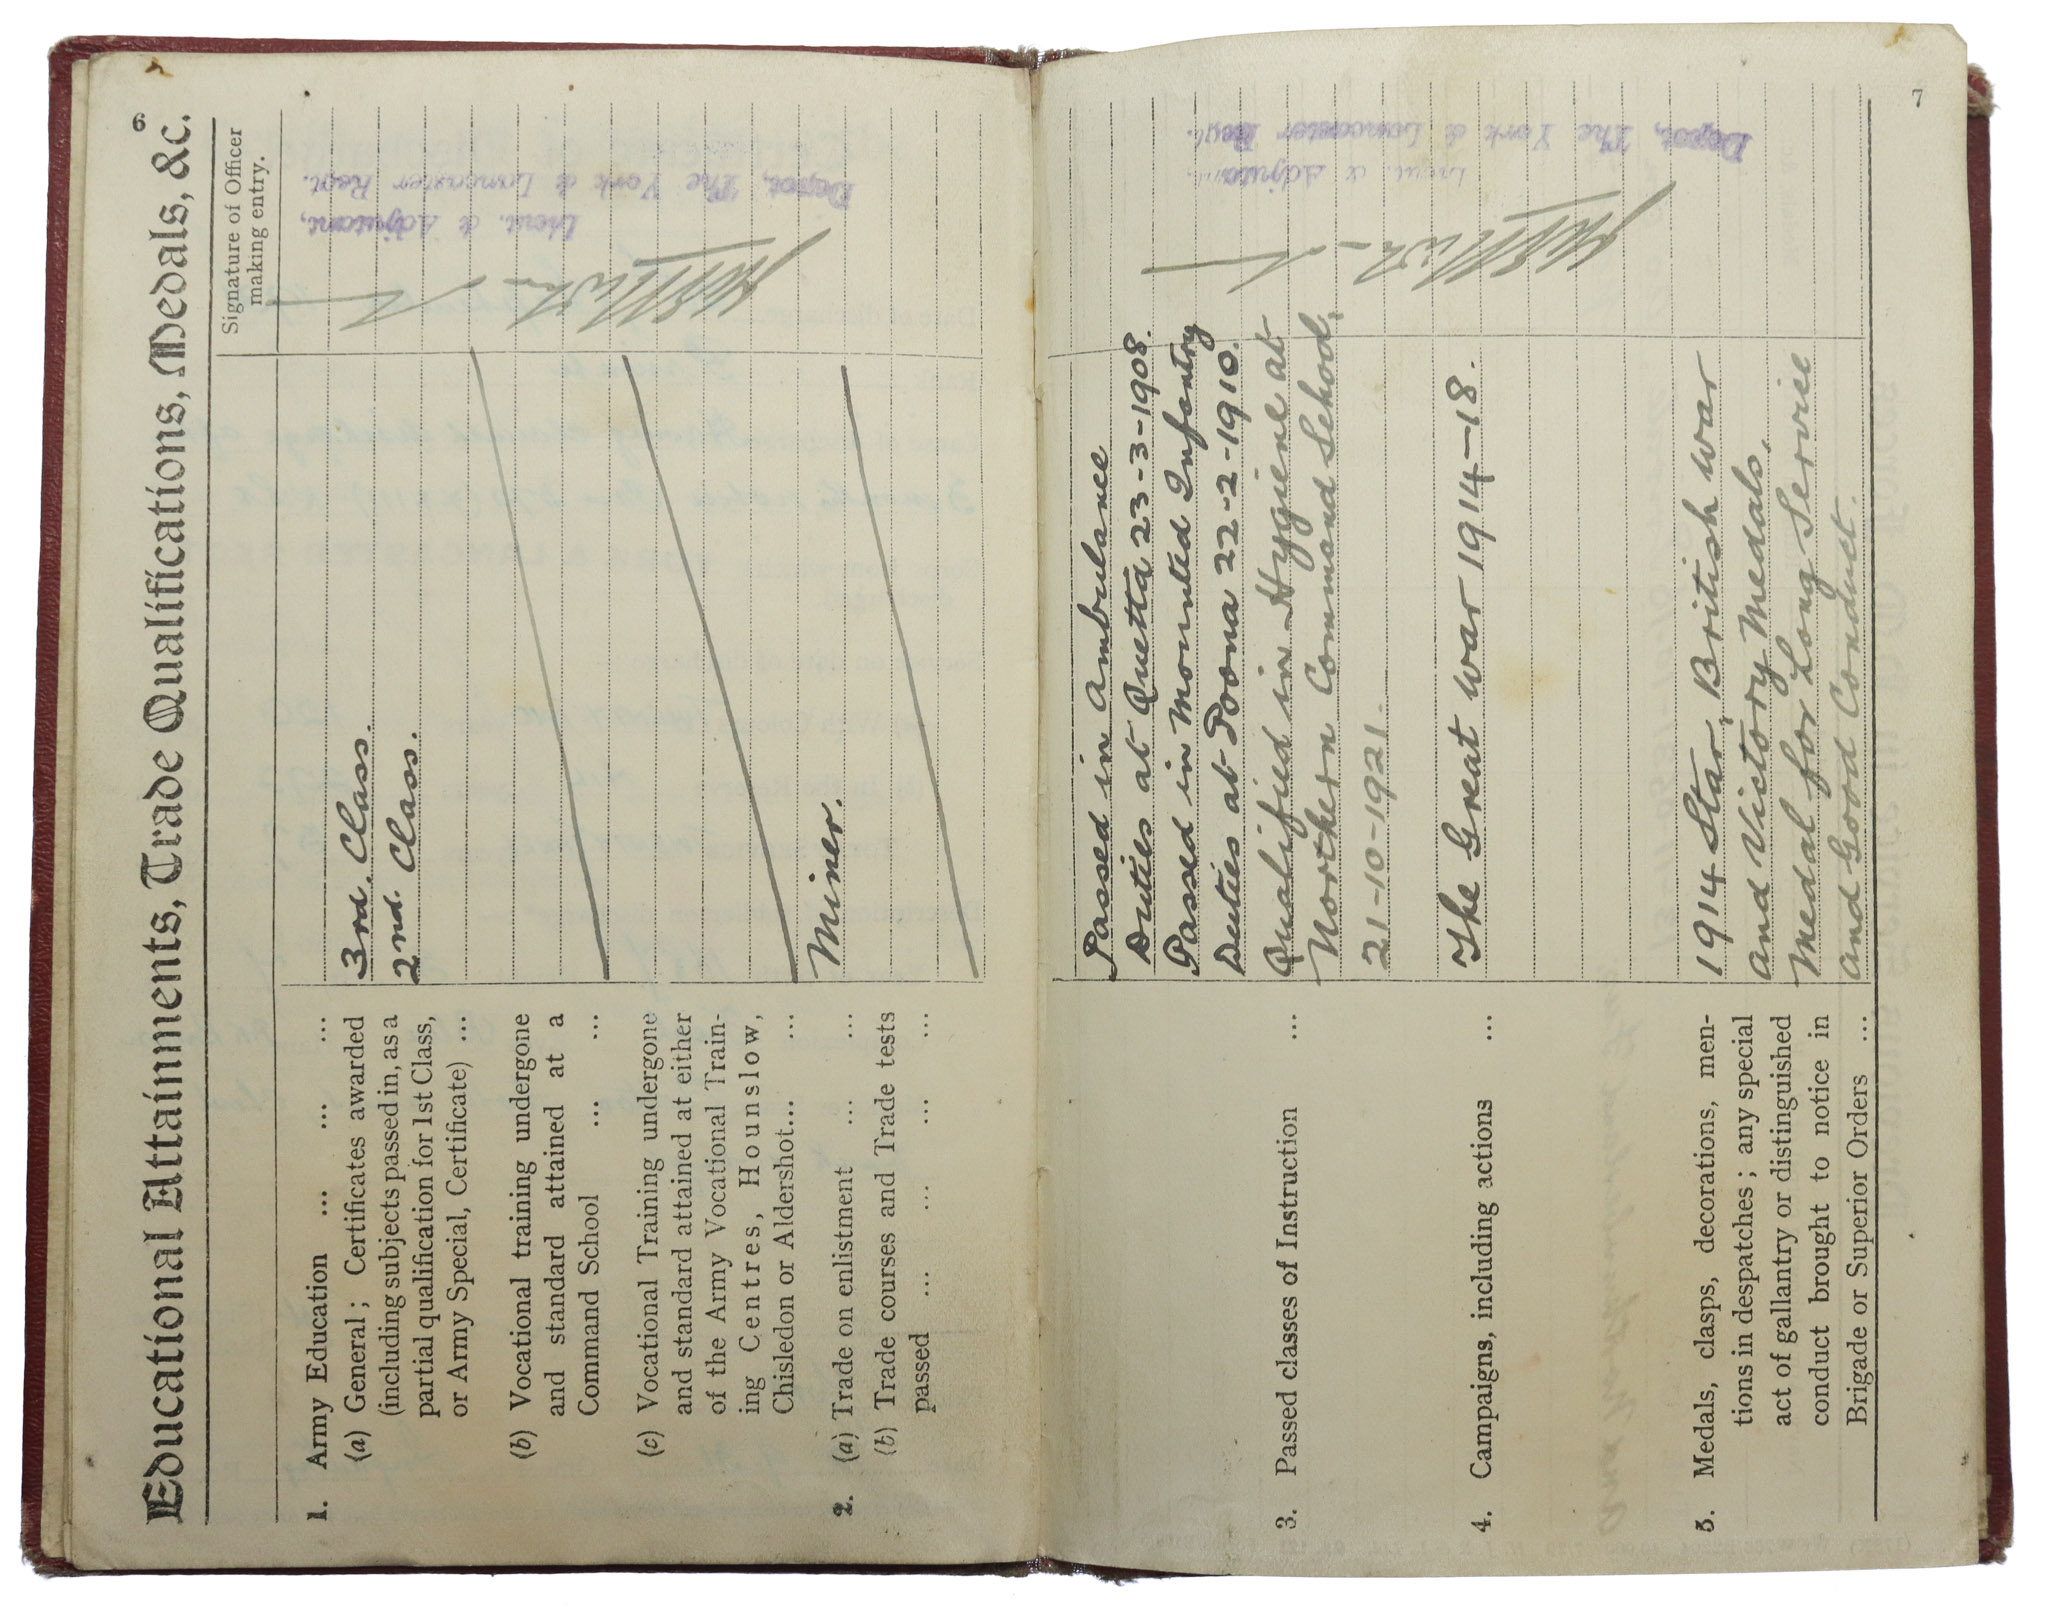 6
Educational Attainments, Trade Qualifications, Medals, &c.
Signature of Officer
making entry.
1. Army Education ... ... ...
(a) General; Certificates awarded
(including subjects passed in, as a
partial qualification for 1st Class,
or Army Special, Certificate) ...
3rd. Class.
2nd. Class.
(b) Vocational training undergone
and standard attained at a
Command School ... ...
(c) Vocational Training undergone
and standard attained at either
of the Army Vocational Train-
ing Centres, Hounslow,
Chisledon or Aldershot... ...
2. (a) Trade on enlistment ... ...
Miner.
(b) Trade courses and Trade tests
passed ... ... ... ...
Lieut. & Adjutant,
Depot, The York & Lancaster Regt.
7
3. Passed classes of Instruction ...
Passed in Ambulance
Duties at Quetta 23-3-1908.
Passed in Mounted Infantry
Duties at Poona 22-2-1910.
Qualified in Hygiene at
Northern Command School,
21-10-1921.
4. Campaigns, including actions ...
The Great War 1914-18.
5. Medals, clasps, decorations, men-
tions in despatches; any special
act of gallantry or distinguished
conduct brought to notice in
Brigade or Superior Orders ...
1914 Star, British War
and Victory Medals,
Medal for Long Service
and Good Conduct.
Lieut. & Adjutant,
Depot, The York & Lancaster Regt.